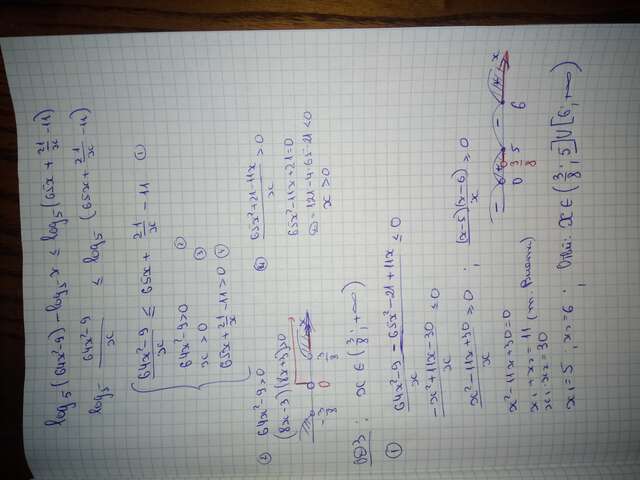 log₅(64x²-9) - log₅x ≤ log₅(65x + 21/x - 11)
log₅ (64x²-9)/x ≤ log₅ (65x + 21/x - 11)
(64x²-9)/x ≤ 65x + 21/x - 11 ①
64x²-9>0 ②
x > 0 ③
65x + 21/x - 11 > 0 ④
② 64x²-9>0
(8x-3)(8x+3)>0
-3/8 0 3/8 x
④ (65x²+21-11x)/x > 0
65x²-11x+21=0
D = 121-4·65·21<0
x > 0
ОДЗ: x ∈ (3/8; +∞)
① (64x²-9-65x²-21+11x)/x ≤ 0
(-x²+11x-30)/x ≤ 0
(x²-11x+30)/x ≥ 0 ; (x-5)(x-6)/x ≥ 0
x²-11x+30=0
x₁+x₂=11 (т. Виета)
x₁·x₂=30
x₁=5 ; x₂=6 .
- + - + x
0 3/8 5 6
Ответ: x ∈ (3/8; 5]∪[6; +∞)